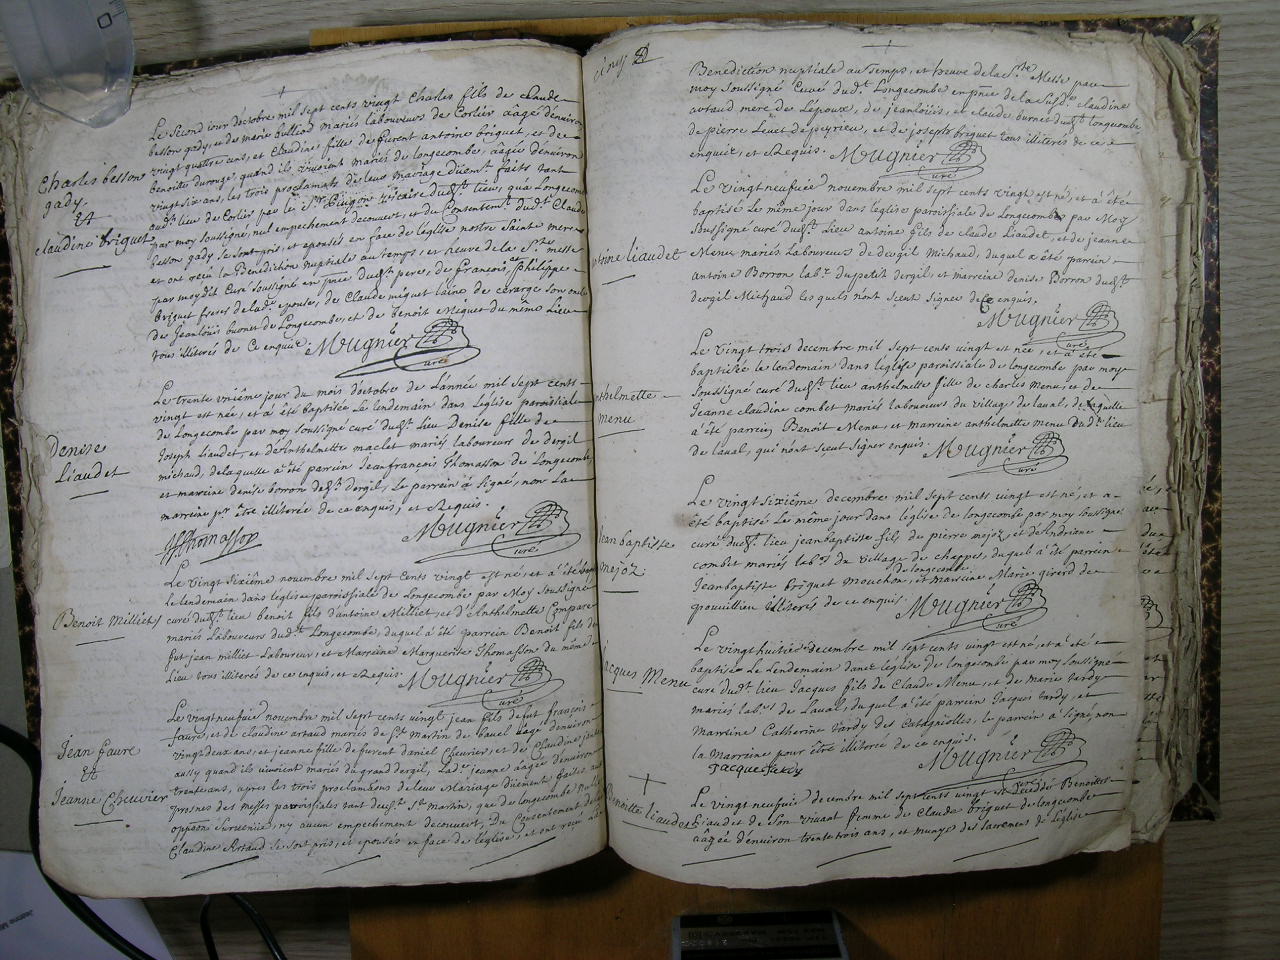 Charles besson
gady.
Et
claudine briguet
Le second jour d'éctobre mil sept cents vingt Charles fils de claude
besson gady, et de marie bulliod mariés laboureurs de Corlier aâgé d'énviron
vingt quattre ans, et Claudine fille de furent antoine briguet, et de
benoite duronge, quand ils vivoient mariés de longecombe, aâgée d'énviron
vingt six ans, les trois proclamats de leur mariage düem.t faits tant
aud.t lieu de Corlier par le vicaire dud.t lieu, qua Longecombe
par moy soussigné, nul empechement decouvert, et du Consentem.t dud.t Claude
besson gady se sont pris, et épousés en face de l'église nostre Sainte mere
et ont recu la Benediction nuptiale au temps, et heure de la S.te messe
par moy dit Curé soussigné en p'nce dud.t pere, de François, et philippe
briguet freres de lad.e épouse, de Claude miguet laine de cerarge son oncle
de Jeanlouis burnet de Longecombe, et de benoit Miguet du même Lieu
tous illiterés de Ce enquis. Mugnier
curé
Denise
Liaudet
Le trente unième jour du mois d'octobre de l'année mil sept cents
vingt est née, et a été baptisée Le lendemain dans l'église paroissiale
de Longecombe par moy soussigné curé dud.t lieu Denise fille de
Joseph Liaudet, et d'Anthelmette maclet mariés laboureurs de dergil
michaud, de laquelle a été parrein Jeanfrançois Thomasson de Longecombe
et marreine denise borron dud.t dergil, Le parrein a signé, non La
marreine pr être illiterée de ce enquis, et Requis.
JfThomasson Mugnier
curé
Benoit Milliet
Le vingt sixième novembre mil sept cents vingt est né, et a été baptisé
le lendemain dans l'église paroissiale de Longecombe par Moy soussigné
curé dud.t lieu benoit fils d'antoine Milliet et d'Anthelmette Compare
mariés Laboureurs dud.t Longecombe, duquel a été parrein Benoit fils de
fut jean milliet Laboureur, et Marreine Marguerite Thomasson du même
Lieu tous illiterés de ce enquis, et Requis. Mugnier
curé
Jean faure
Et
Jeanne Cheurier
Le vingt neufuié novembre mil sept cents vingt jean fils de fut françois
faure, et de claudine artaud mariés de S.t martin de bauel aagé d'enuiron
vingt deux ans, et jeanne fille de furent daniel Cheurier, et de Claudine
aussy quand ils vivoient mariés du grand dergil, Lad.e jeanne aagée d'énviron
trente ans, apres les trois proclamations de leur Mariage düements faites aux
prosnes des messes paroissiales tant dud.t S.t Martin, que de longecombe
oppoōn survenüe, ny aucun empechement decouvert, Du Consentement de
Claudine Artaud se sont pris, et épousés en face de l'église, et ont recu
cinq
Benediction nuptiale au Temps, et heure de la S.te Messe par
moy Soussigné Curé dud.t Longecombe en p'nce de la susd.e claudine
artaud mere de L'époux, de jeanloüis, et claude burnet dud.t longecombe
de pierre Leuet de peyrieu, et de joseph briguet tous illiterés de ce
enquis, et Requis. Mugnier
curé
antoine liaudet
Le vingt neufuié novembre mil sept cents vingt est né, et a été
baptisé Le même jour dans l'église paroissiale de Longecombe par Moy
soussigné curé dud.t Lieu antoine fils de claude Liaudet, et de jeanne
Menu mariés Laboureurs de dergil Michaud, duquel a été parrein
Antoine Borron lab.r du petit dergil, et marreine denise Borron dud.t
dergil Michaud les quels n'ont sceut signer de ce enquis.
Mugnier
curé
anthelmette
menu
Le vingt trois decembre mil sept cents vingt est née, et a été
baptisée le lendemain dans l'église paroissiale de longecombe par moy
soussigné curé dud.t lieu anthelmette fille de charles menu, et de
Jeanne claudine combet mariés laboureurs du village de laual, de laquelle
a été parrein Benoit Menu, et marreine anthelmette menu dud.t lieu
de laual, qui n'ont sceut signer enquis. Mugnier
curé
Jean baptiste
mejoz
Le vingt sixième decembre mil sept cents vingt est né, et a
été baptisé Le même jour dans l'église de longecombe par moy soussigné
curé dud.t lieu jeanbaptiste fils de pierre mejoz, et d'Andriane
combet mariés lab.rs du village de cheppes, duquel a été parrein
Jeanbaptiste briguet mouchon de longecombe, et marreine Marie girerd de
grouuillieu illiterés de ce enquis. Mugnier
curé
Jacques Menu
Le vingt huitié decembre mil sept cents vingt est né, et a été
baptisé Le Lendemain dans l'église de longecombe par moy soussigné
curé dud.t lieu Jacques fils de Claude Menu, et de marie tardy
mariés lab.rs de Laual, duquel a été parrein Jacques tardy, et
Marreine Catherine tardy des Catagnolles, le parrein a signé, non
la Marreine pour être illiterée de ce enquis.
Jacque tardy Mugnier
curé
Benoitte liaudet
Le vingt neufuié decembre mil sept cents vingt est decedée Benoitte
Liaudet de son vivant femme de Claude briguet de longecombe
aâgée d'énviron trente trois ans, et munye des sacremens de l'église